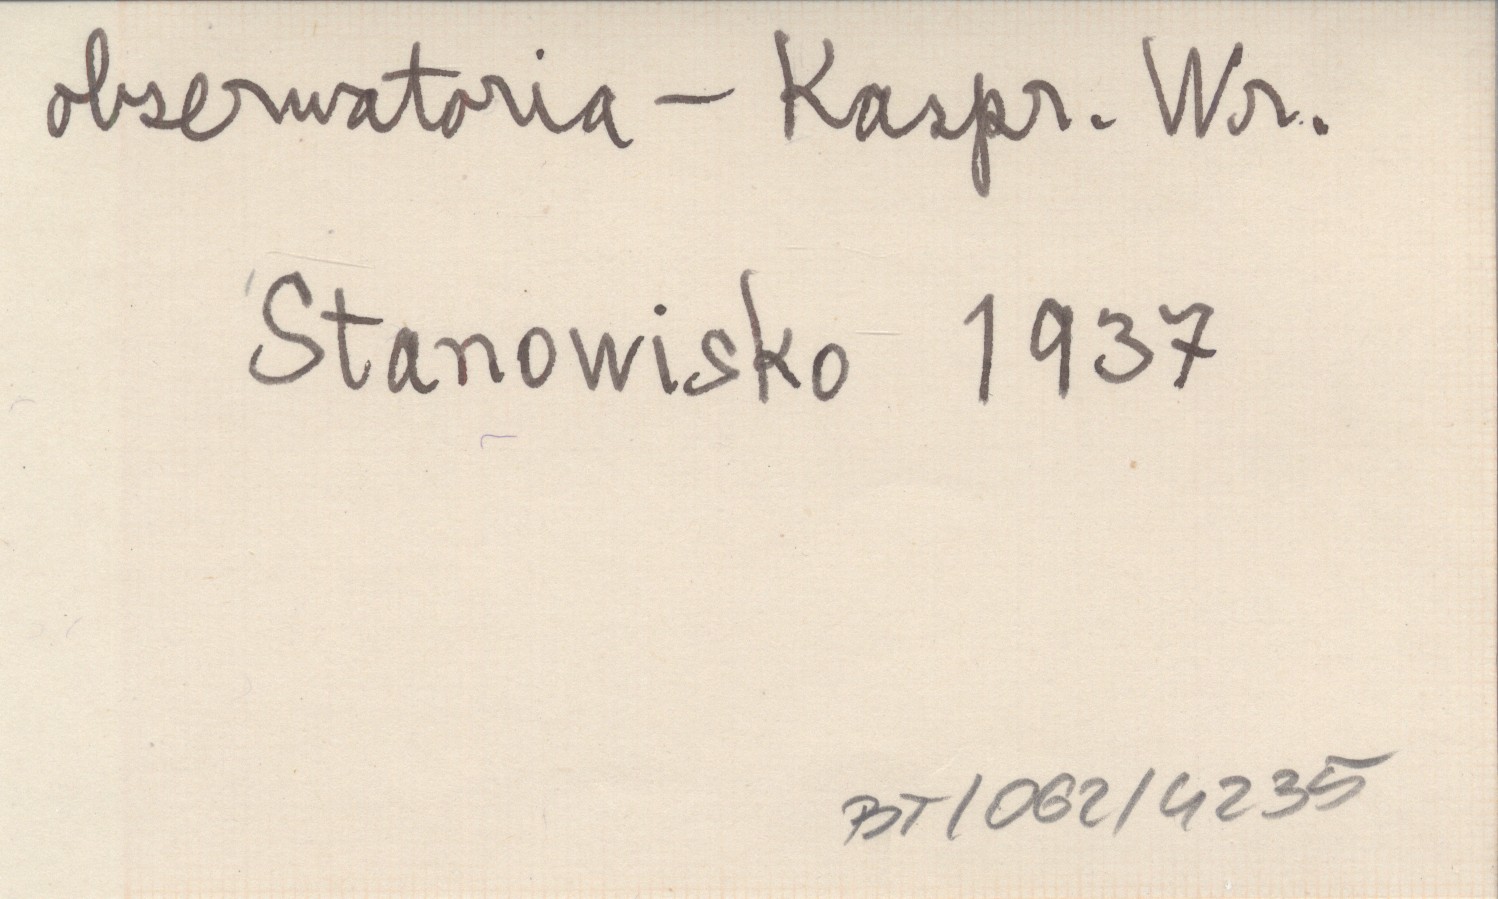 obserwatoria – Kaspr. Wr.
Stanowisko 1937
BT/062/4235